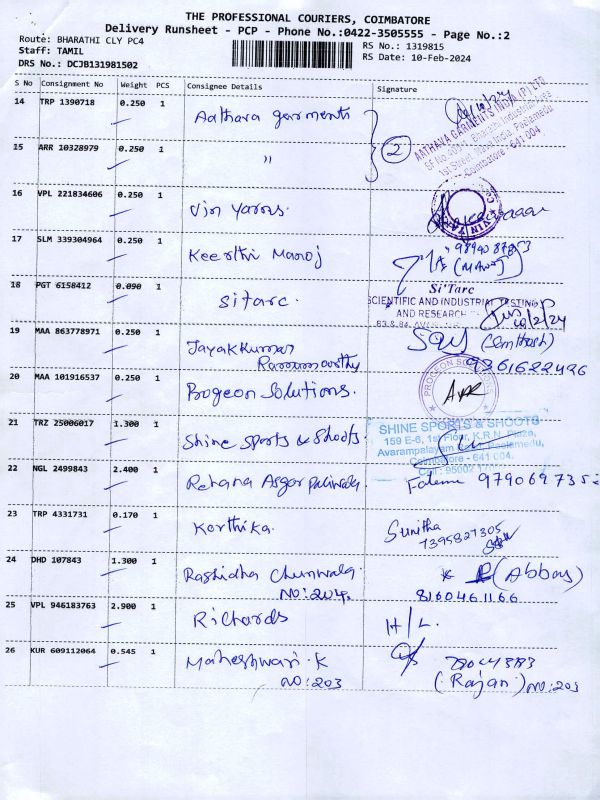 THE PROFESSIONAL COURIERS, COIMBATORE
Delivery Runsheet - PCP - Phone No.:0422-3505555 - Page No.:2
Route: BHARATHI CLY PC4
Staff: TAMIL
DRS No.: DCJB131981502
RS No.: 1319815
RS Date: 10-Feb-2024
S No Consignment No Weight PCS Consignee Details Signature
14 TRP 1390718 0.250 1 Aathava garments
AATHANA GARMENTS INDIA (P) LTD
Coimbatore - 641 004
15 ARR 10328979 0.250 1 " 2
16 VPL 221834606 0.250 1 Vin Yarns.
17 SLM 339304964 0.250 1 Keerthi Manoj
(Manoj)
18 PGT 6158412 0.090 1 Sitarc.
Si'Tarc
SCIENTIFIC AND INDUSTRIAL TESTING
AND RESEARCH
10/2/24
19 MAA 863778971 0.250 1 Jayakkumar
Rammoorthy
9361622426
20 MAA 101916537 0.250 1 Progeon Solutions.
21 TRZ 25006017 1.300 1 Shine Sports & Shoots.
SHINE SPORTS & SHOOTS
159 E-6, 1st Floor, K.R.N. Plaza,
Avarampalayam Peelamedu,
Coimbatore - 641 004.
22 NGL 2499843 2.400 1 Rehana Asgar Paliwala.
979069735
23 TRP 4331731 0.170 1 Karthika.
Sunitha
7395827305
24 DHD 107843 1.300 1 Rashidha Chunwala.
NO: 204.
(Abbas)
8160461166
25 VPL 946183763 2.900 1 Richards H/L.
26 KUR 609112064 0.545 1 Maheshwari. K
NO: 203
(Rajan) NO: 203